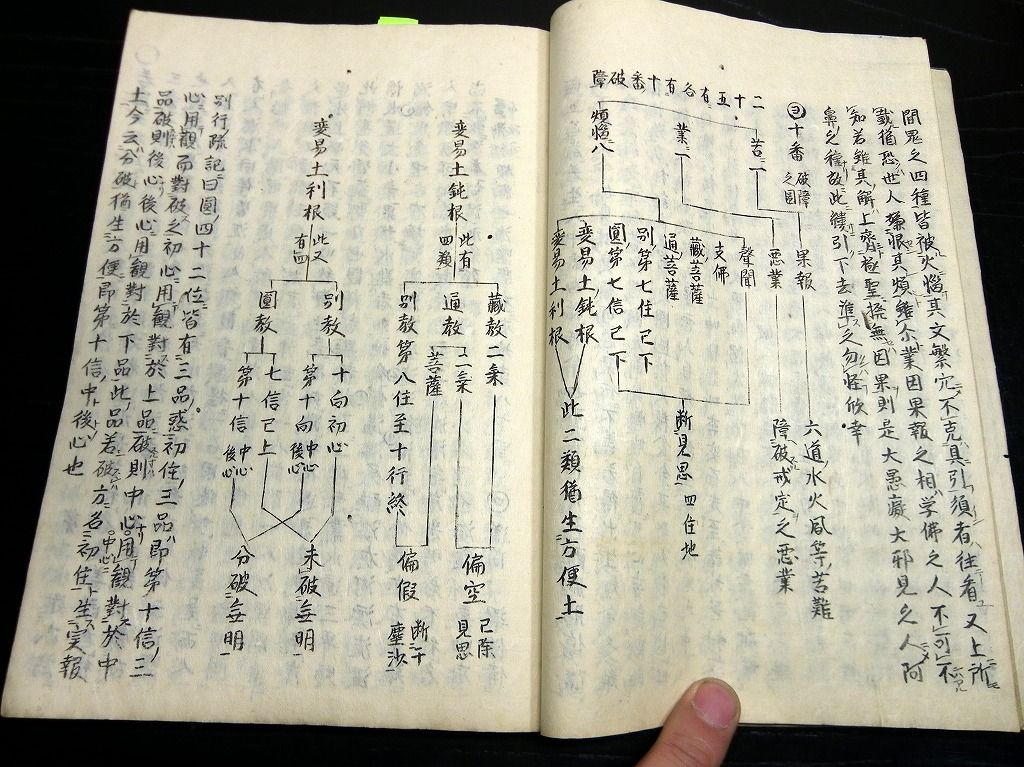 問恩之四種皆被火惱其文繁冗不克具引須者往看又上所
載猶恐世人嫌恨其煩雖示業因果報之相学佛之人不可不
知若雖其解上齊極聖撥無因果則是大愚癡大邪見之人阿
鼻之種故此復引下去進之勿怪欣幸
ヨ十番破障之圖
二十五有各有十番破障
苦二
果報
六道水火風等苦難
業一
悪業
障破戒定之悪業
煩惱八
聲聞
支佛
藏菩薩
通菩薩
別第七住已下
圓第七信已下
断見思四住地
変易土鈍根
変易土利根
此二類猶生方便土
変易土鈍根
此有四類
藏教二乗
通教
二乗
菩薩
偏空已除見思
別教第八住至十行終
偏假断于塵沙
変易土利根
此又有四
別教
十向初心
第十向中心後心
圓教
七信已上
第十信中心後心
未破無明
分破無明
別行除記曰圓四十二位皆有三品惑初住三品即第十信三
心用觀而對破之初心用觀對於上品破則中心用觀對於中
品破則後心後心用觀對於下品此品若破方名初住生実報
土今云分破猶生方便即第十信中後心也